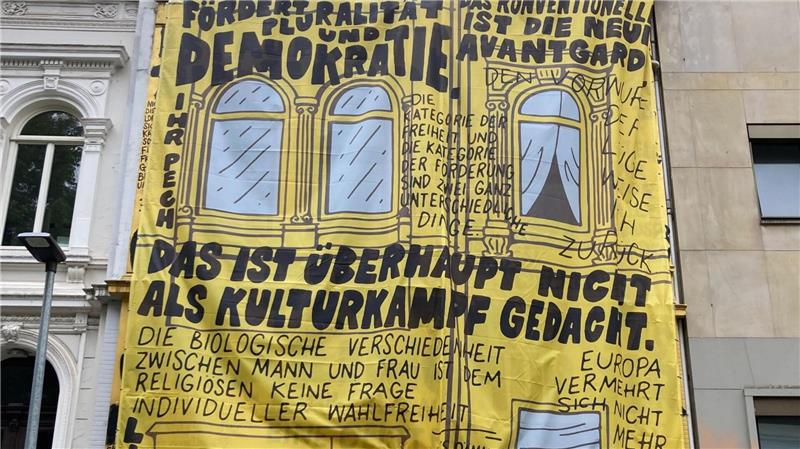 FÖRDERT
PLURALITÄT
UND
DEMOKRATIE.
DAS KONVENTIONELL
IST DIE NEUE
AVANTGARD
DEN VORWURF
DER
LÜGE
WEISE
ICH
ZURÜCK
IHR PECH
DIE
KATEGORIE DER
FREIHEIT UND
DIE KATEGORIE
DER FÖRDERUNG
SIND ZWEI GANZ
UNTERSCHIEDLICHE
DINGE
DAS IST ÜBERHAUPT NICHT
ALS KULTURKAMPF GEDACHT.
DIE BIOLOGISCHE VERSCHIEDENHEIT
ZWISCHEN MANN UND FRAU IST DEM
RELIGIÖSEN KEINE FRAGE
INDIVIDUELLER WAHLFREIHEIT
EUROPA
VERMEHRT
SICH NICHT
MEHR